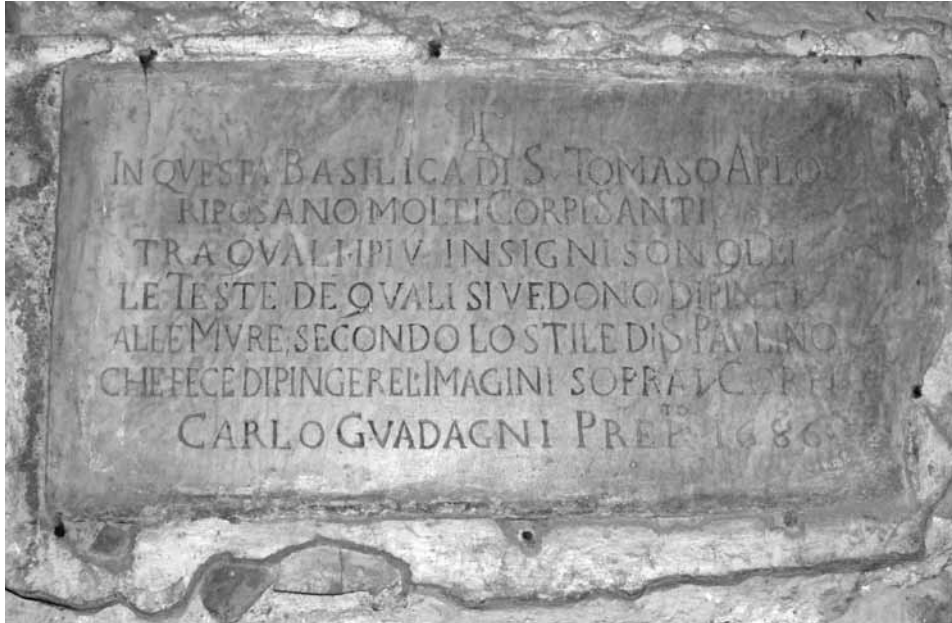 IN QVESTA BASILICA DI S. TOMASO APLO
RIPOSANO MOLTI CORPI SANTI
TRA QVALI I PIV INSIGNI SON QLLI
LE TESTE DE QVALI SI VEDONO DIPINTE
ALLE MVRE, SECONDO LO STILE DI S. PAVLINO
CHE FECE DIPINGERE L'IMAGINI SOPRA I CORPI
CARLO GVADAGNI PREP.TO 1686